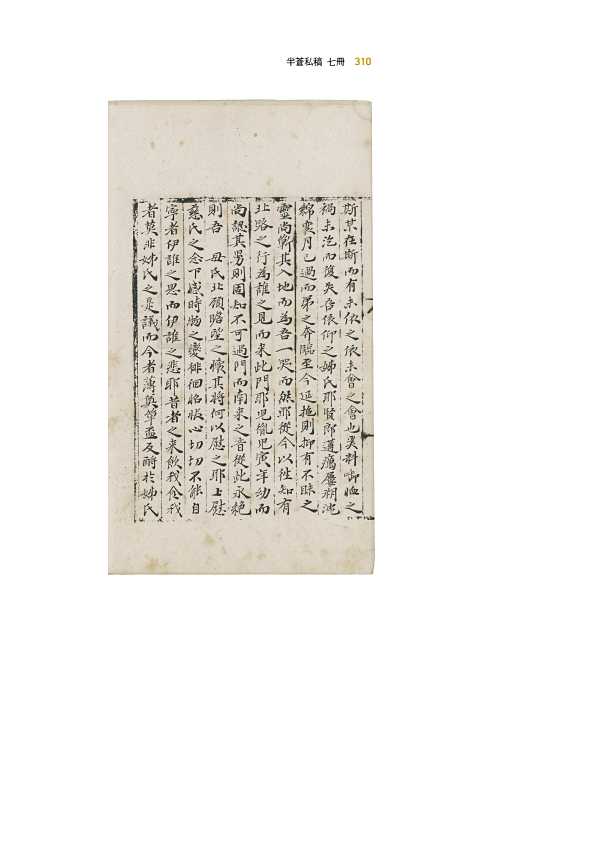 半蒼私稿 七冊 310
斯某在斯而有未依之依未會之會也奚料喞恤之
禍未洽而遽失吾依仰之姊氏耶賢郞遘癘屢朔沈
綿襄月已過而弟之奔臨至今延拖則抑有不昧之
靈尙儕其入地而爲吾一哭而然耶從今以徃知有
北路之行爲誰之見而來此門耶児胤児寅年幼而
尙覩其男則固知不可過門而南來之音從此永絶
則吾 母氏北領賂望之懷其將何以慰之耶上慰
慈氏之念下感時物之變徘徊掐振心切切不能自
寧者伊誰之思而伊誰之悲耶昔者之來飮我食我
者莫非姊氏之是議而今者薄奠單盃反酹於姊氏